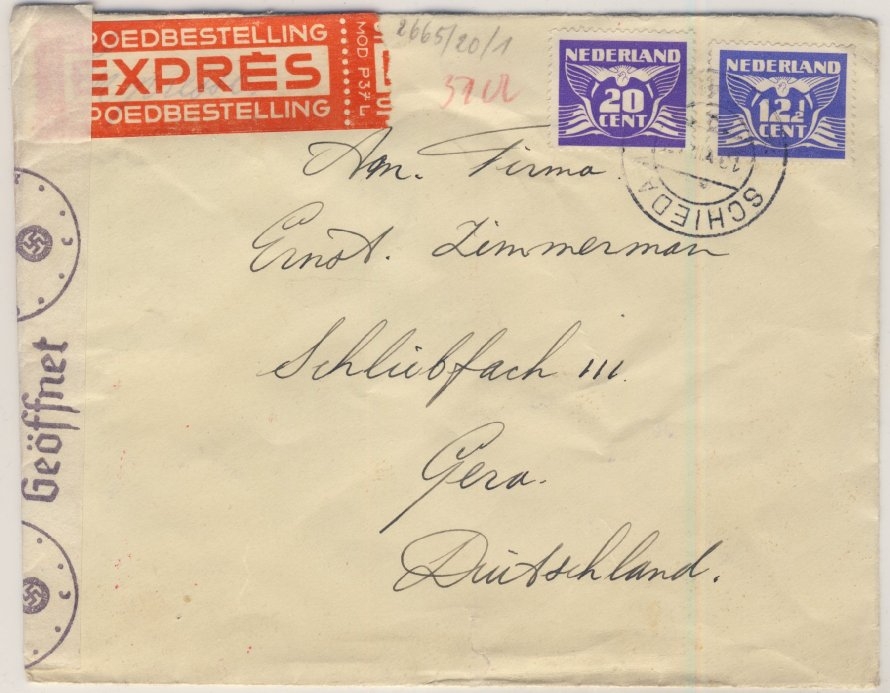 POEDBESTELLING
EXPRÈS
POEDBESTELLING
MOD P37L
2665/20/1
NEDERLAND
20
CENT
NEDERLAND
12½
CENT
SCHIEDA
Aan. Firma
Ernst. Zimmerman
Schliebfach 111.
Gera.
Deutschland.
Geöffnet
c
c